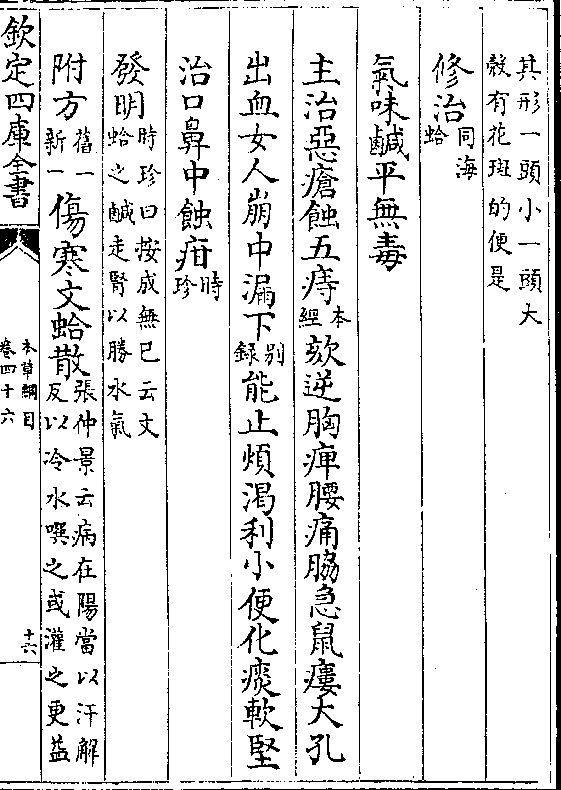 其形一頭小一頭大
殻有花斑的便是
修治同海蛤
氣味鹹平無毒
主治惡瘡蝕五痔本經欬逆胸痺腰痛脇急鼠瘻大孔
出血女人崩中漏下别錄能止煩渴利小便化痰軟堅
治口鼻中蝕疳時珍
發明時珍曰按成無已云文
蛤之鹹走腎以勝水氣
附方舊一新一傷寒文蛤散張仲景云病在陽當以汗解
反以冷水噀之或灌之更益
欽定四庫全書
本草綱目
卷四十六
十六